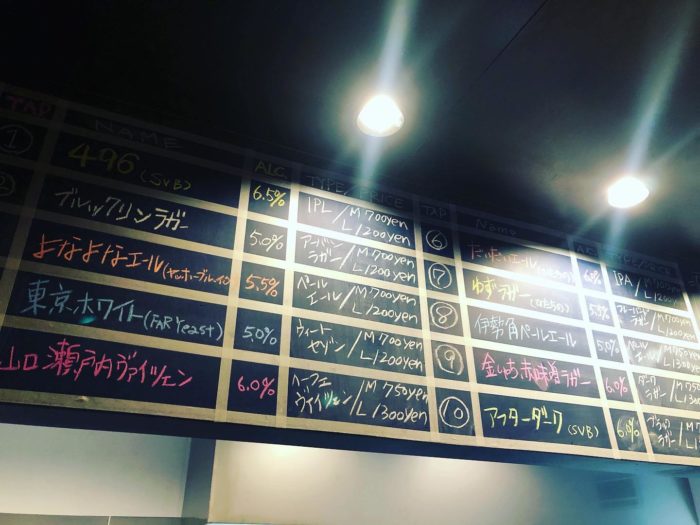 TAP NAME ALC. TYPE/PRICE TAP Name
① 496 (SVB) 6.5% IPL / M 700yen
L 1200yen
② ブルックリンラガー 5.0% アーバン
ラガー / M 700yen
L 1200yen
よなよなエール 5.5% ペール
エール / M 700yen
L 1200yen
東京ホワイト (FAR Yeast) 5.0% ウィート
セゾン / M 700yen
L 1200yen
山口瀬戸内ヴァイツェン 6.0% ヘーフェ
ヴァイツェン / M 750yen
L 1300yen
⑥ だいだいエール 6.0% IPA
⑦ ゆずラガー 5.5%
ラガー
⑧ 伊勢角ペールエール 5.0% ペール
エール
⑨ 金しゃち赤味噌ラガー 6.0% ダーク
ラガー
⑩ アフターダーク (SVB) ブラック
ラガー